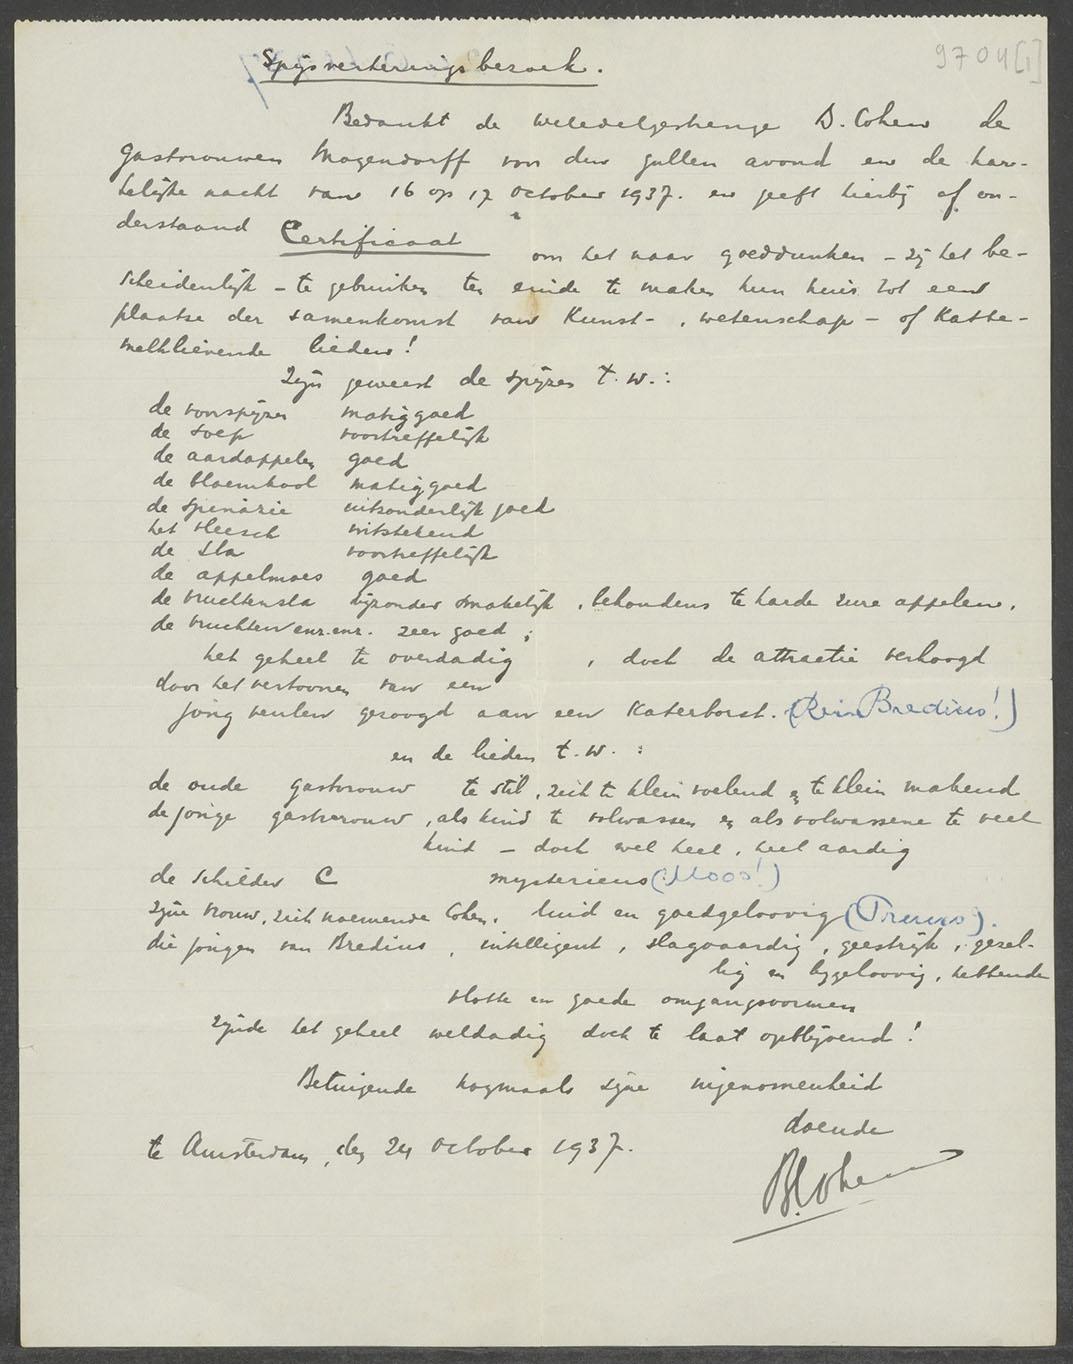 9704[1]
Spijsverteringsbezoek.
Bedankt de weledelgestrenge D. Cohen de
gastvrouwen Magendorff voor den gullen avond en de har-
telijke nacht van 16 op 17 October 1937. en geeft hierbij af on-
derstaand Certificaat om het naar goeddunken - zij het be-
scheidenlijk - te gebruiken ten einde te maken hun huis tot een
plaatse der samenkomst van Kunst-, wetenschap- of Katte-
melklievende lieden!
Zijn geweest de spijzen t.w.:
de voorspijzen matiggoed
de soep voortreffelijk
de aardappelen goed
de bloemkool matiggoed
de spinazie uitzonderlijk goed
het vleesch uitstekend
de sla voortreffelijk
de appelmoes goed
de vruchtensla bijzonder smakelijk, behoudens te harde zure appelen.
de vruchten enz. enz. zeer goed;
het geheel te overdadig, doch de attractie verhoogd
door het vertoonen van een
jong veulen gezoogd aan een Katerborst. (Rein Bredius!)
en de lieden t.w.:
de oude gastvrouw te stil, zich te klein voelend en te klein makend
de jonge gastvrouw, als kind te volwassen en als volwassene te veel
kind - doch wel heel, heel aardig
de schilder C mysterieus (Moos!)
zijne vrouw, zich noemende Cohen, luid en goedgeloovig (Truus).
die jongen van Bredius, intelligent, slagvaardig, geestrijk, gezel-
lig en bijgeloovig, hebbende
vlotte en goede omgangsvormen
zijnde het geheel weldadig doch te laat opblijvend!
Betuigende nogmaals zijne ingenomenheid
doende
te Amsterdam, den 24 October 1937.
D. Cohen